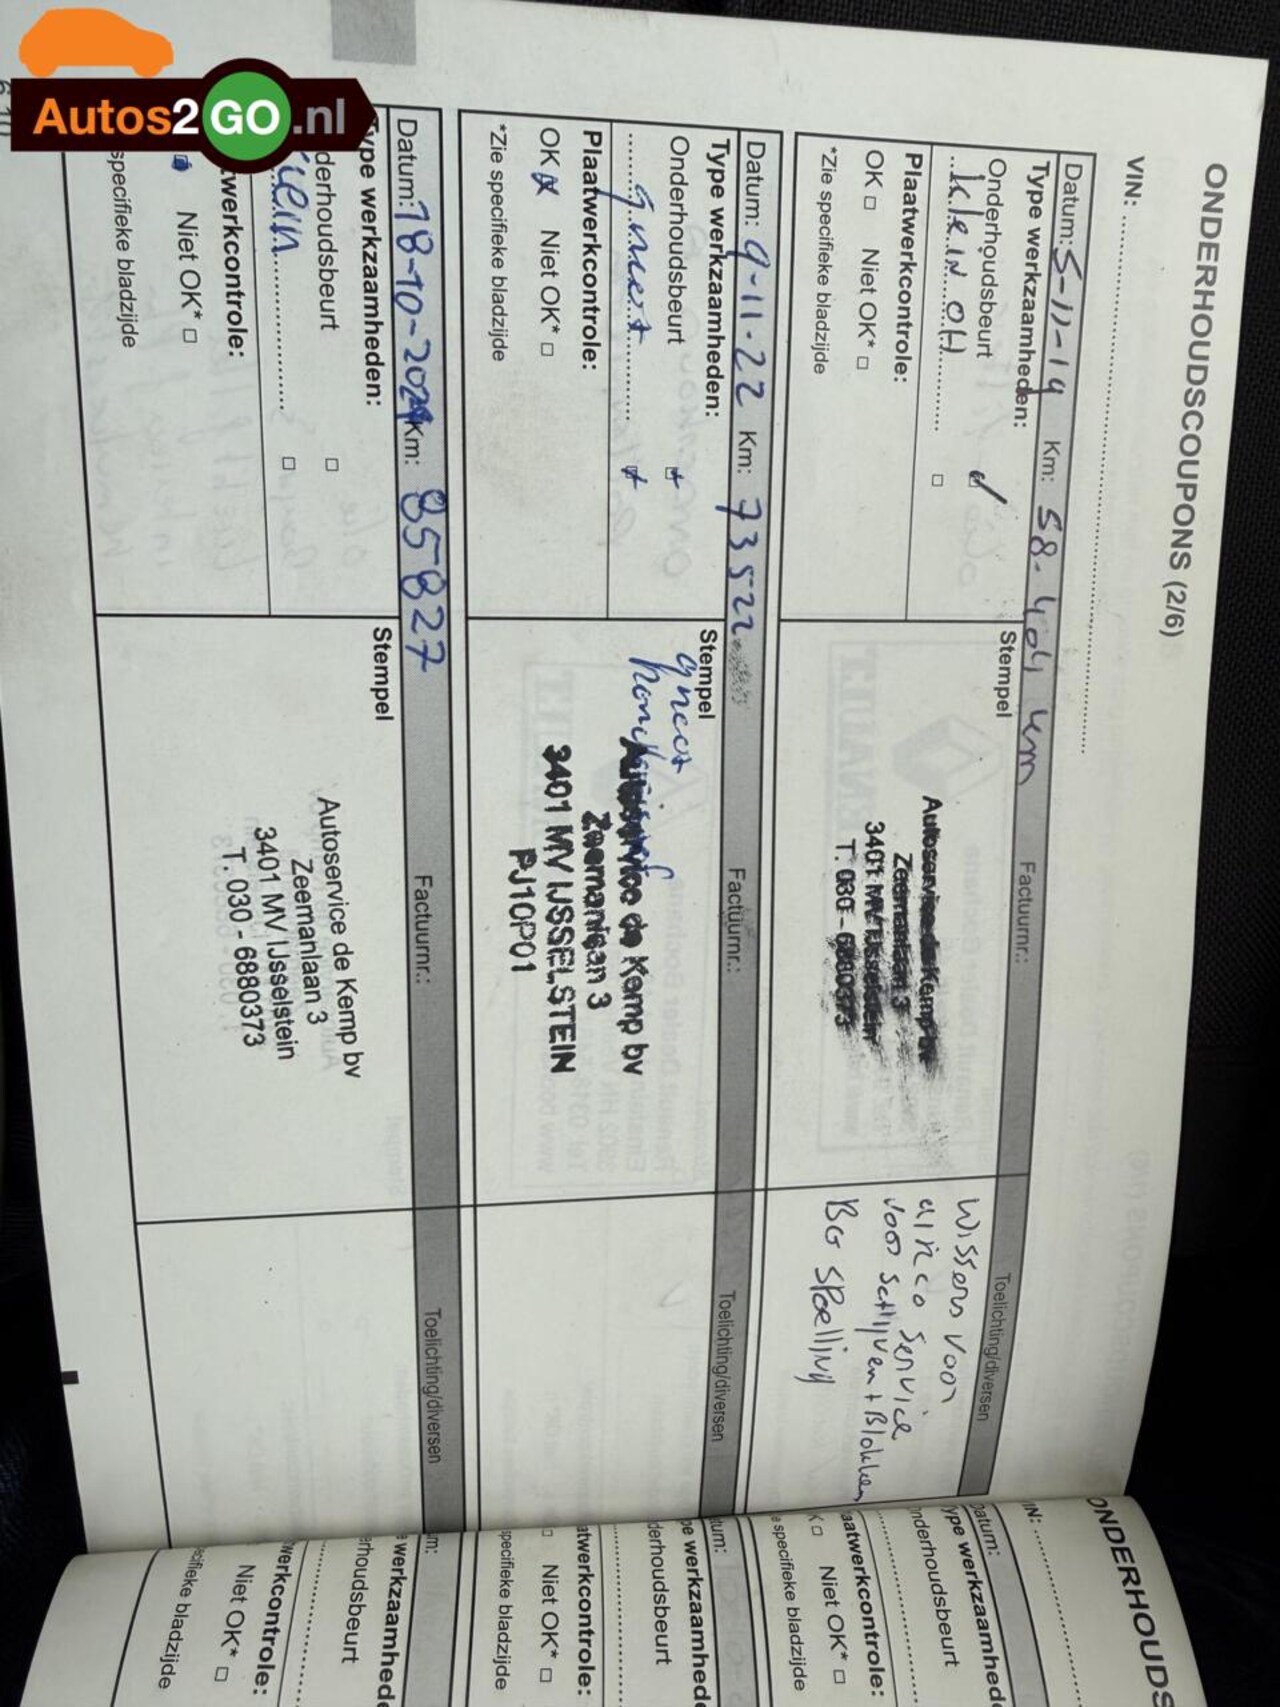 Autos2GO.nl
ONDERHOUDSCOUPONS (2/6)
VIN:
Datum: 5-11-19 Km: 58.404 km Factuurnr.: Toelichting/diversen
Type werkzaamheden:
Onderhoudsbeurt
Klein OH
Plaatwerkcontrole:
OK □ Niet OK* □
*Zie specifieke bladzijde
Stempel
Autoservice de Kemp bv
Zeemanlaan 3
3401 MV IJsselstein
T. 030 - 6880373
Wissers voor
airco service
voor schijven + Blokken
BG spoeling
Datum: 9-11-22 Km: 73522 Factuurnr.: Toelichting/diversen
Type werkzaamheden:
Onderhoudsbeurt
groot
Plaatwerkcontrole:
OK Niet OK* □
*Zie specifieke bladzijde
Stempel
groot
Autoservice de Kemp bv
Zeemanlaan 3
3401 MV IJSSELSTEIN
PJ10P01
Datum: 18-10-2024 Km: 85827 Factuurnr.: Toelichting/diversen
ype werkzaamheden:
derhoudsbeurt
klein
twerkcontrole:
Niet OK* □
specifieke bladzijde
Stempel
Autoservice de Kemp bv
Zeemanlaan 3
3401 MV IJsselstein
T. 030 - 6880373
ONDERHOUDS
IN:
Datum:
ype werkzaamhed
nderhoudsbeurt
aatwerkcontrole:
K □ Niet OK* □
e specifieke bladzijde
tum:
pe werkzaamhed
derhoudsbeurt
atwerkcontrole:
□ Niet OK* □
specifieke bladzijde
m:
e werkzaamhede
erhoudsbeurt
werkcontrole:
Niet OK* □
ecifieke bladzijde